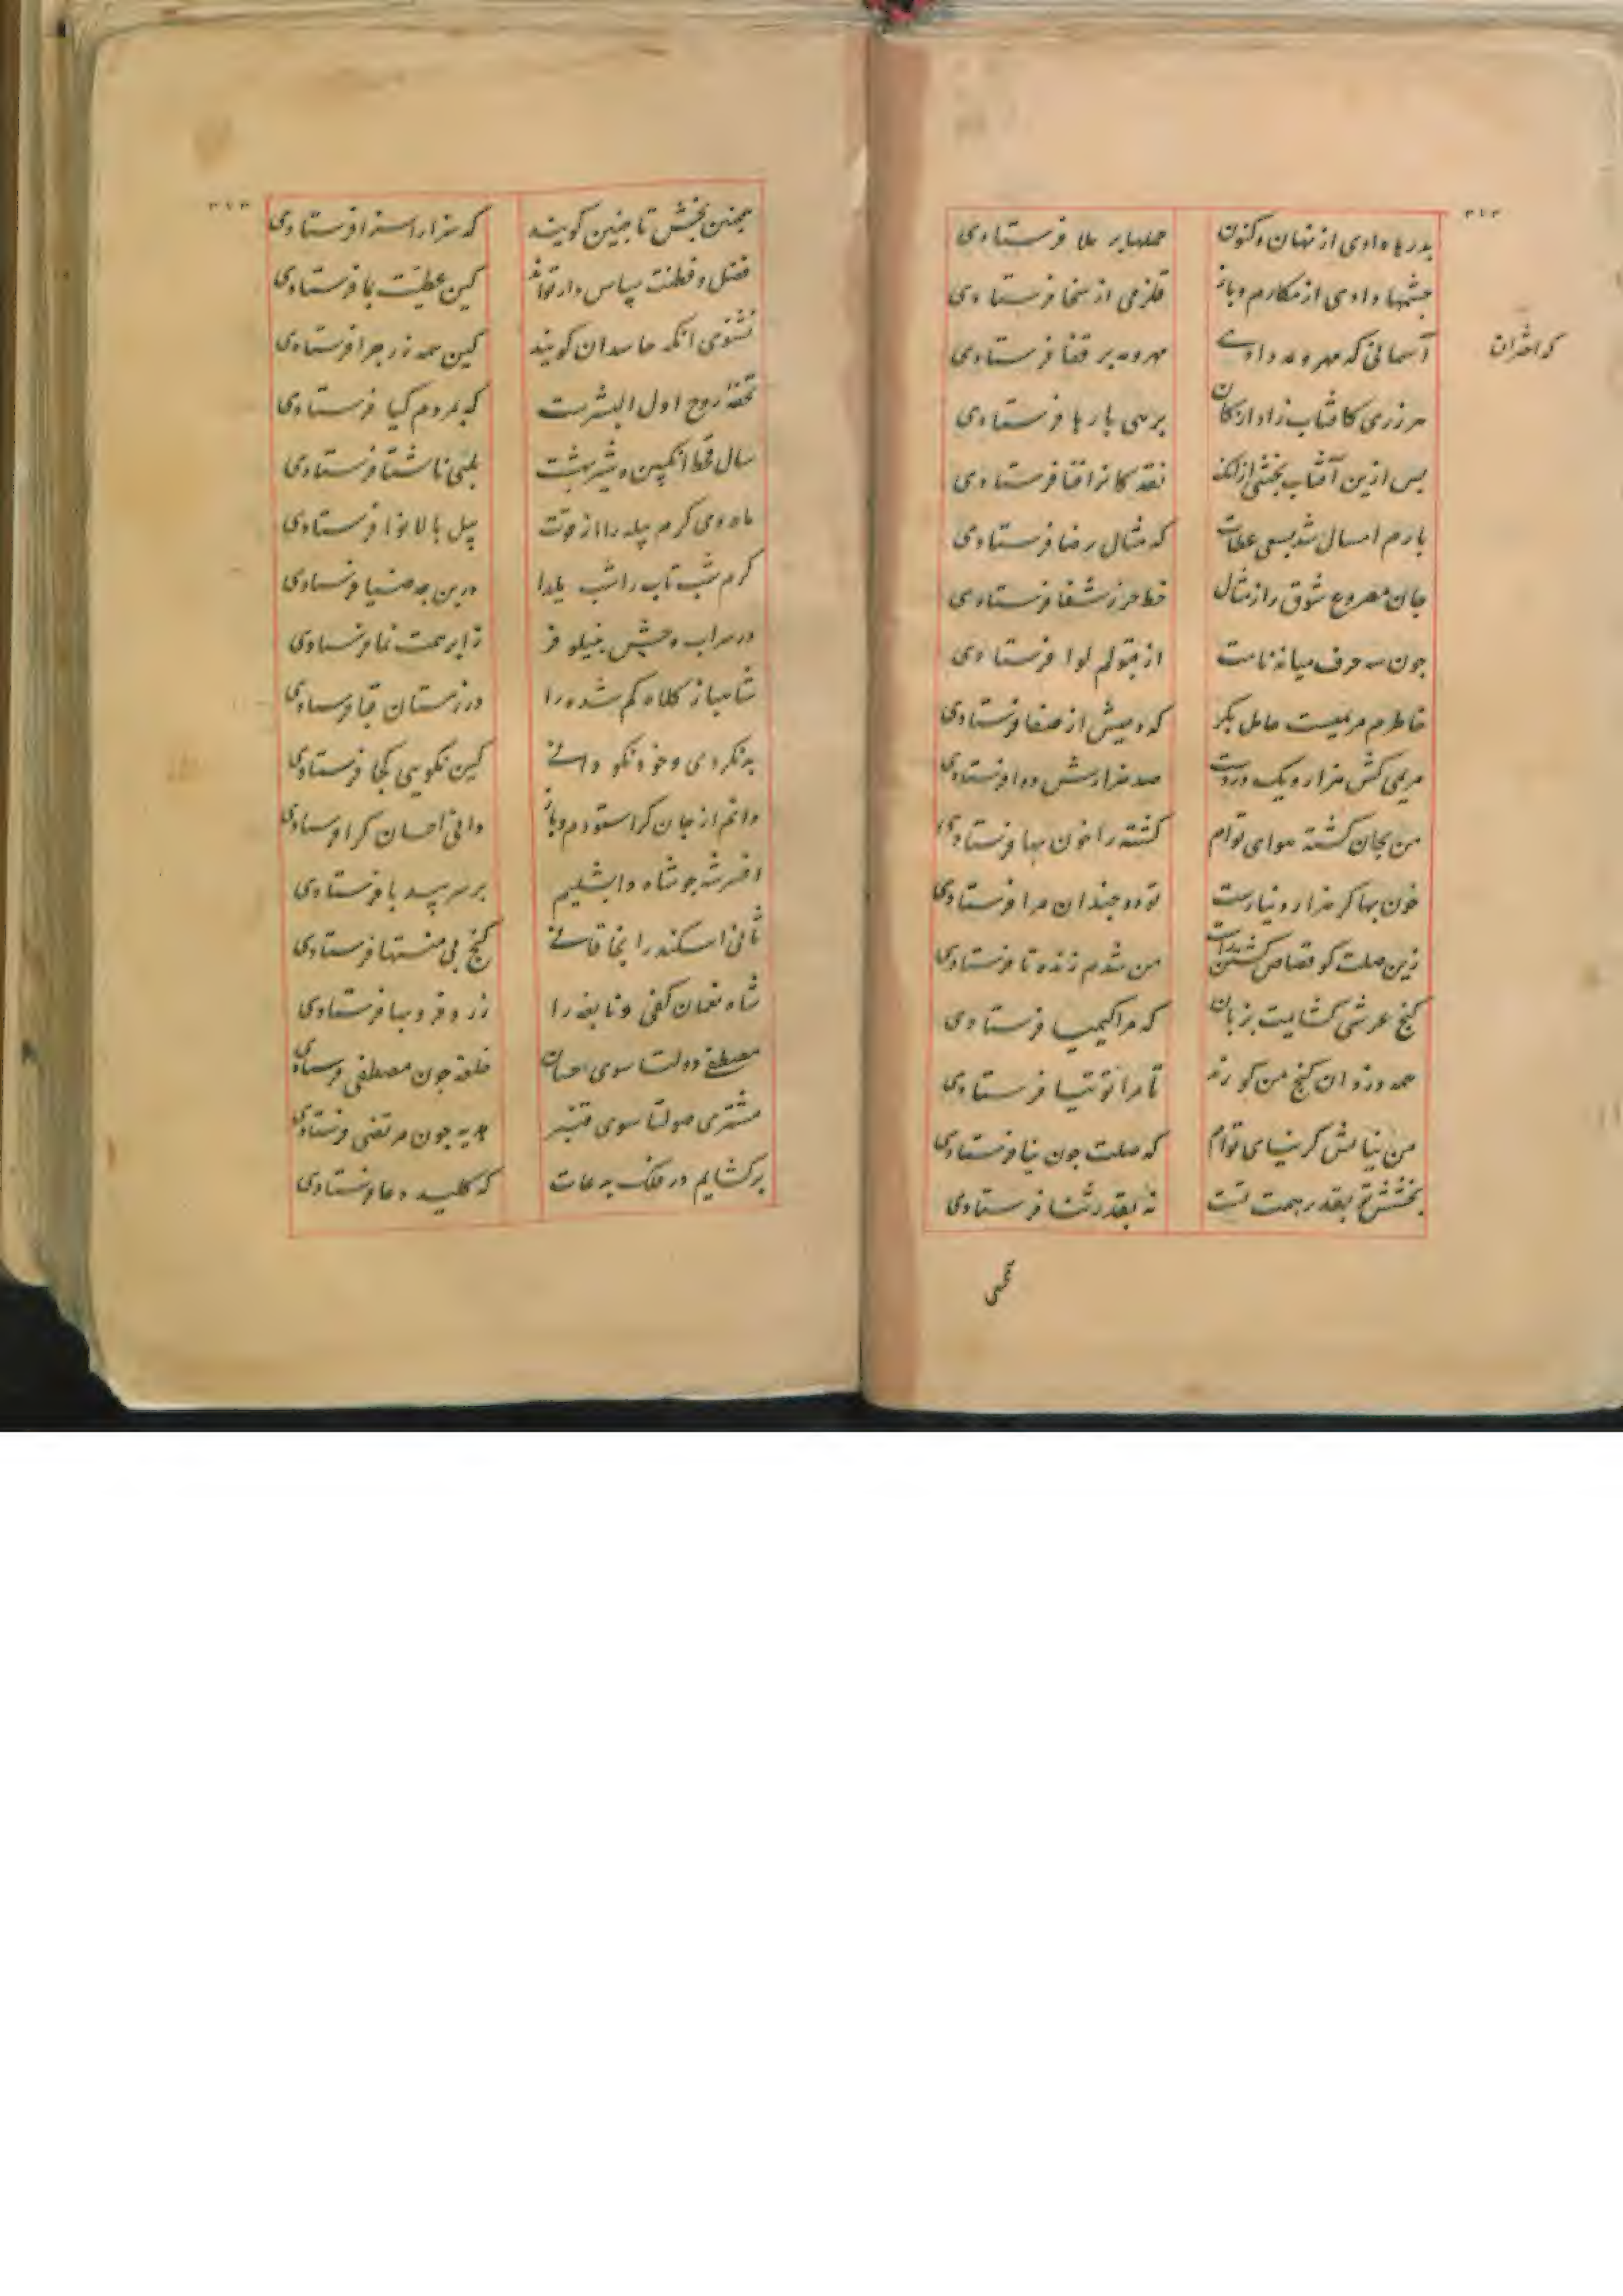 بدرها دادی از نهان و کنون حملها بر ملا فرستادی
چشمها دادی از مکارم و باز قلزمی از سخا فرستادی
آسمانی که مهر و مه دادی مهر و مه بر قفا فرستادی
که اختران
هر زری کافتاب زاد از کان برهی بارها فرستادی
پس ازین آفتاب بخشی از آنک نقد کانرا فنا فرستادی
بارم امسال شد بسعی عطات که مثال رضا فرستادی
جان مصروع شوق را ز مثال خط حرز شفا فرستادی
چون سه حرف میانه نامت از قبولم لوا فرستادی
خاطرم مریمیست حامل بکر که دمیش از صفا فرستادی
مریمی کش هزار و یک دردست صد هزارش دوا فرستادی
من بجان کشته هوای توام کشته را خون بها فرستادی
خون بها گر هزار دینارست تو دو چندان مرا فرستادی
زین صلت کو قصاص کشتن راست من شدم زنده تا فرستادی
گنج عرشی گشایمت بزبان که مرا کیمیا فرستادی
همه دزدان گنج من کورند تا مرا توتیا فرستادی
من نیایش گر نیای توام که صلت چون نیا فرستادی
بخشش تو بقدر همت تست نه بقدر ثنا فرستادی
همچنین بخش تا چنین گویند که سزا را سزا فرستادی
فضل و فطنت سپاس دار تواند کین عطیت بما فرستادی
نشنوی آنکه حاسدان گویند کین همه زر چرا فرستادی
تحفه روح اول البشرست که بمردم گیا فرستادی
سال قحط انگبین و شیر بهشت بلبی ناشتا فرستادی
ماه دی کرم پیله را از قوت پیل بالا نوا فرستادی
کرم شب تاب را شب یلدا در بن چه ضیا فرستادی
در سراب وحش بنیلوفر ز ابر همت نما فرستادی
شاهباز کلاه گم شده را در زمستان قبا فرستادی
بد نکردی و خود نکو دانی کین نکویی کجا فرستادی
دانم از جان کرا ستودم و باز دانی احسان کرا فرستادی
افسر شه چو شاه دابشلیم بر سر بیدپا فرستادی
ثانی اسکندرا بخاقانی گنج بی منتها فرستادی
شاه نعمان کفی و نابغه را زر و فر و بها فرستادی
مصطفی دولتا سوی حسان خلعه چون مصطفی فرستادی
مشتری صولتا سوی قنبر هدیه چون مرتضی فرستادی
برگشایم در فلک بدعات که کلید دعا فرستادی